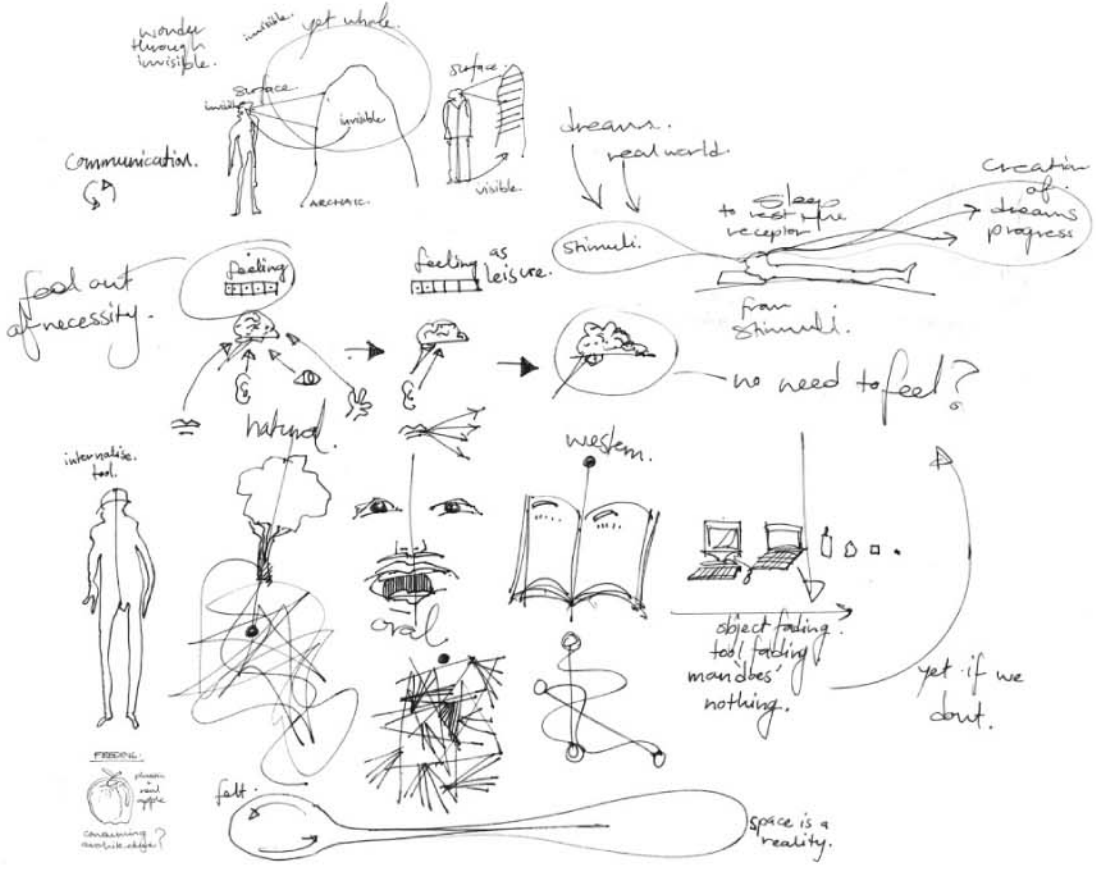 wonder
through
invisible.
invisible.
yet whole.
surface.
invisible
invisible
ARCHAIC.
surface.
visible.
communication.
dreams.
real world.
stimuli.
sleep
to rest the
receptor
from
stimuli.
creation
of
dreams
progress
feel out
of necessity.
feeling
feeling as
leisure.
no need to feel?
natural.
western.
internalise
tool.
oral
object fading.
tool fading
man 'does'
nothing.
yet if we
dont.
FEEDING.
real
apple
consuming
felt.
space is a
reality.